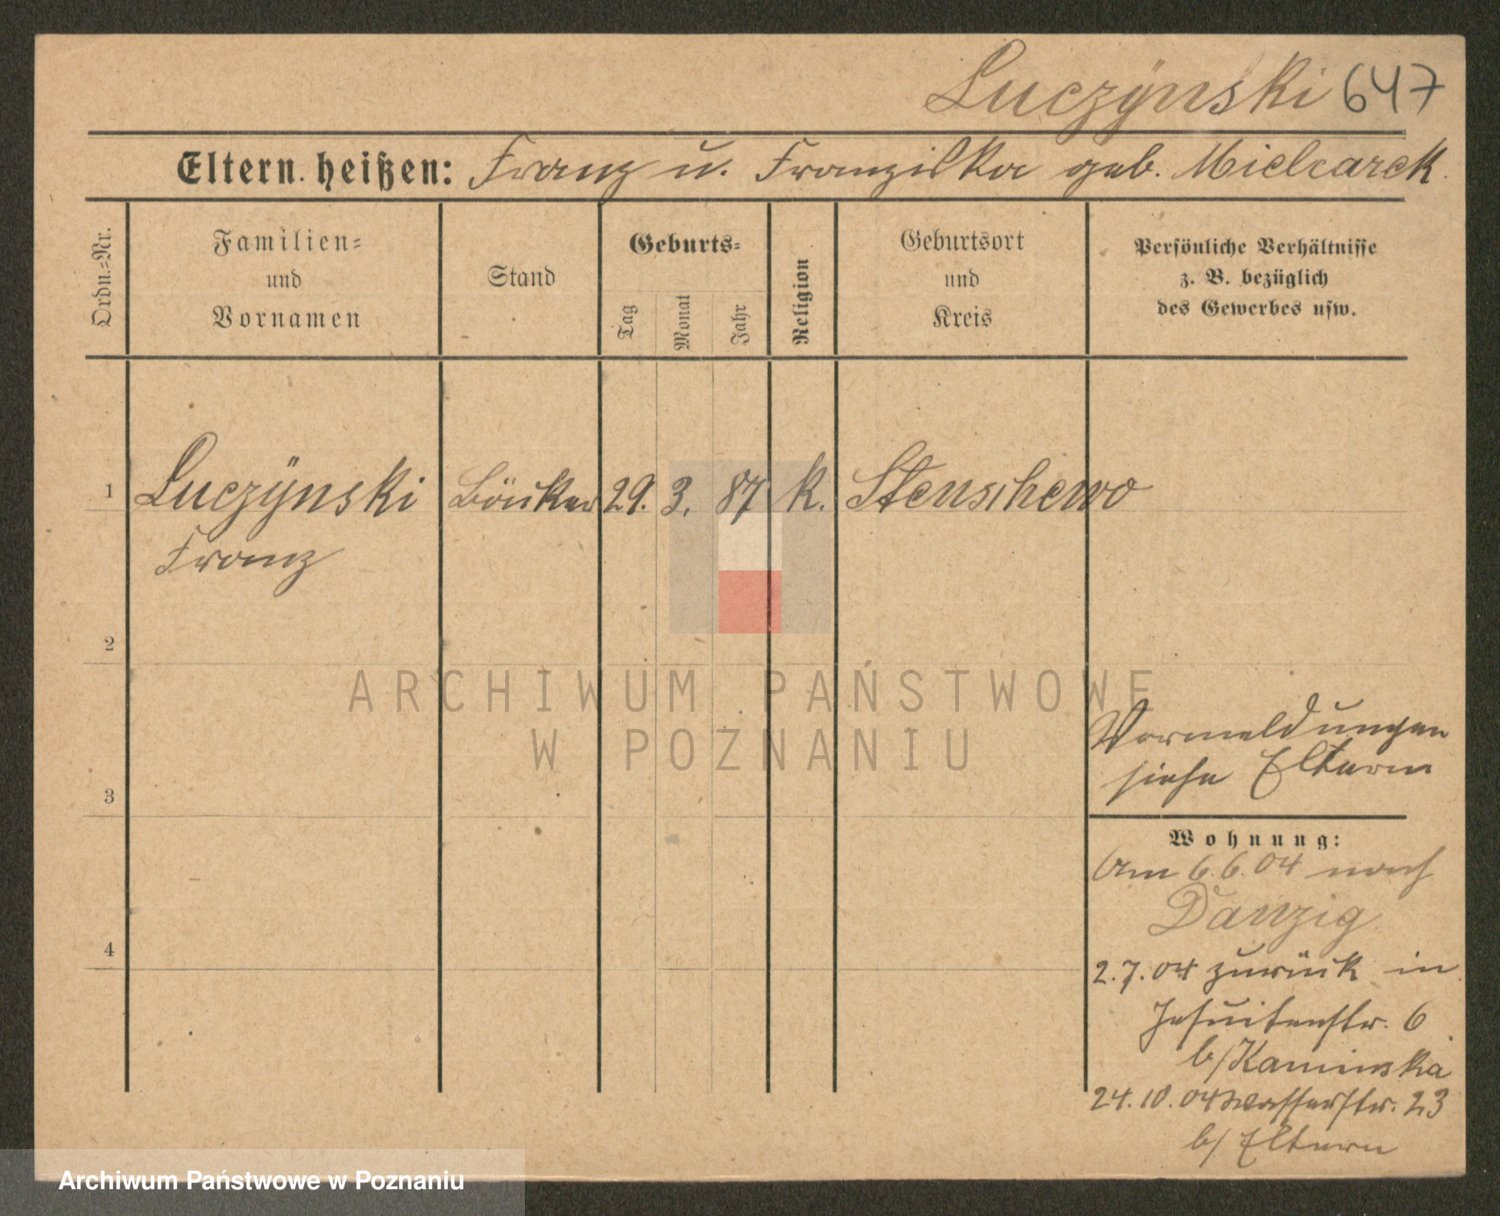 Luczÿnski 647
Eltern heißen: Franz u. Franziska geb. Mielcarek.
Ordn.-Nr.
Familien-
und
Vornamen
Stand
Geburts-
Tag
Monat
Jahr
Religion
Geburtsort
und
Kreis
Persönliche Verhältnisse
z. B. bezüglich
des Gewerbes usw.
1 Luczÿnski 29. 3. 87 k. Stenschewo
Franz
2
3
4
Vormeldungen
siehe Eltern
Wohnung:
Am 6.6.04 nach
Danzig
2.7.04 zurück in
Jesuitenstr. 6
b/Kaminska
24.10.04 Wasserstr. 23
b/ Eltern
ARCHIWUM PAŃSTWOWE
W POZNANIU
Archiwum Państwowe w Poznaniu